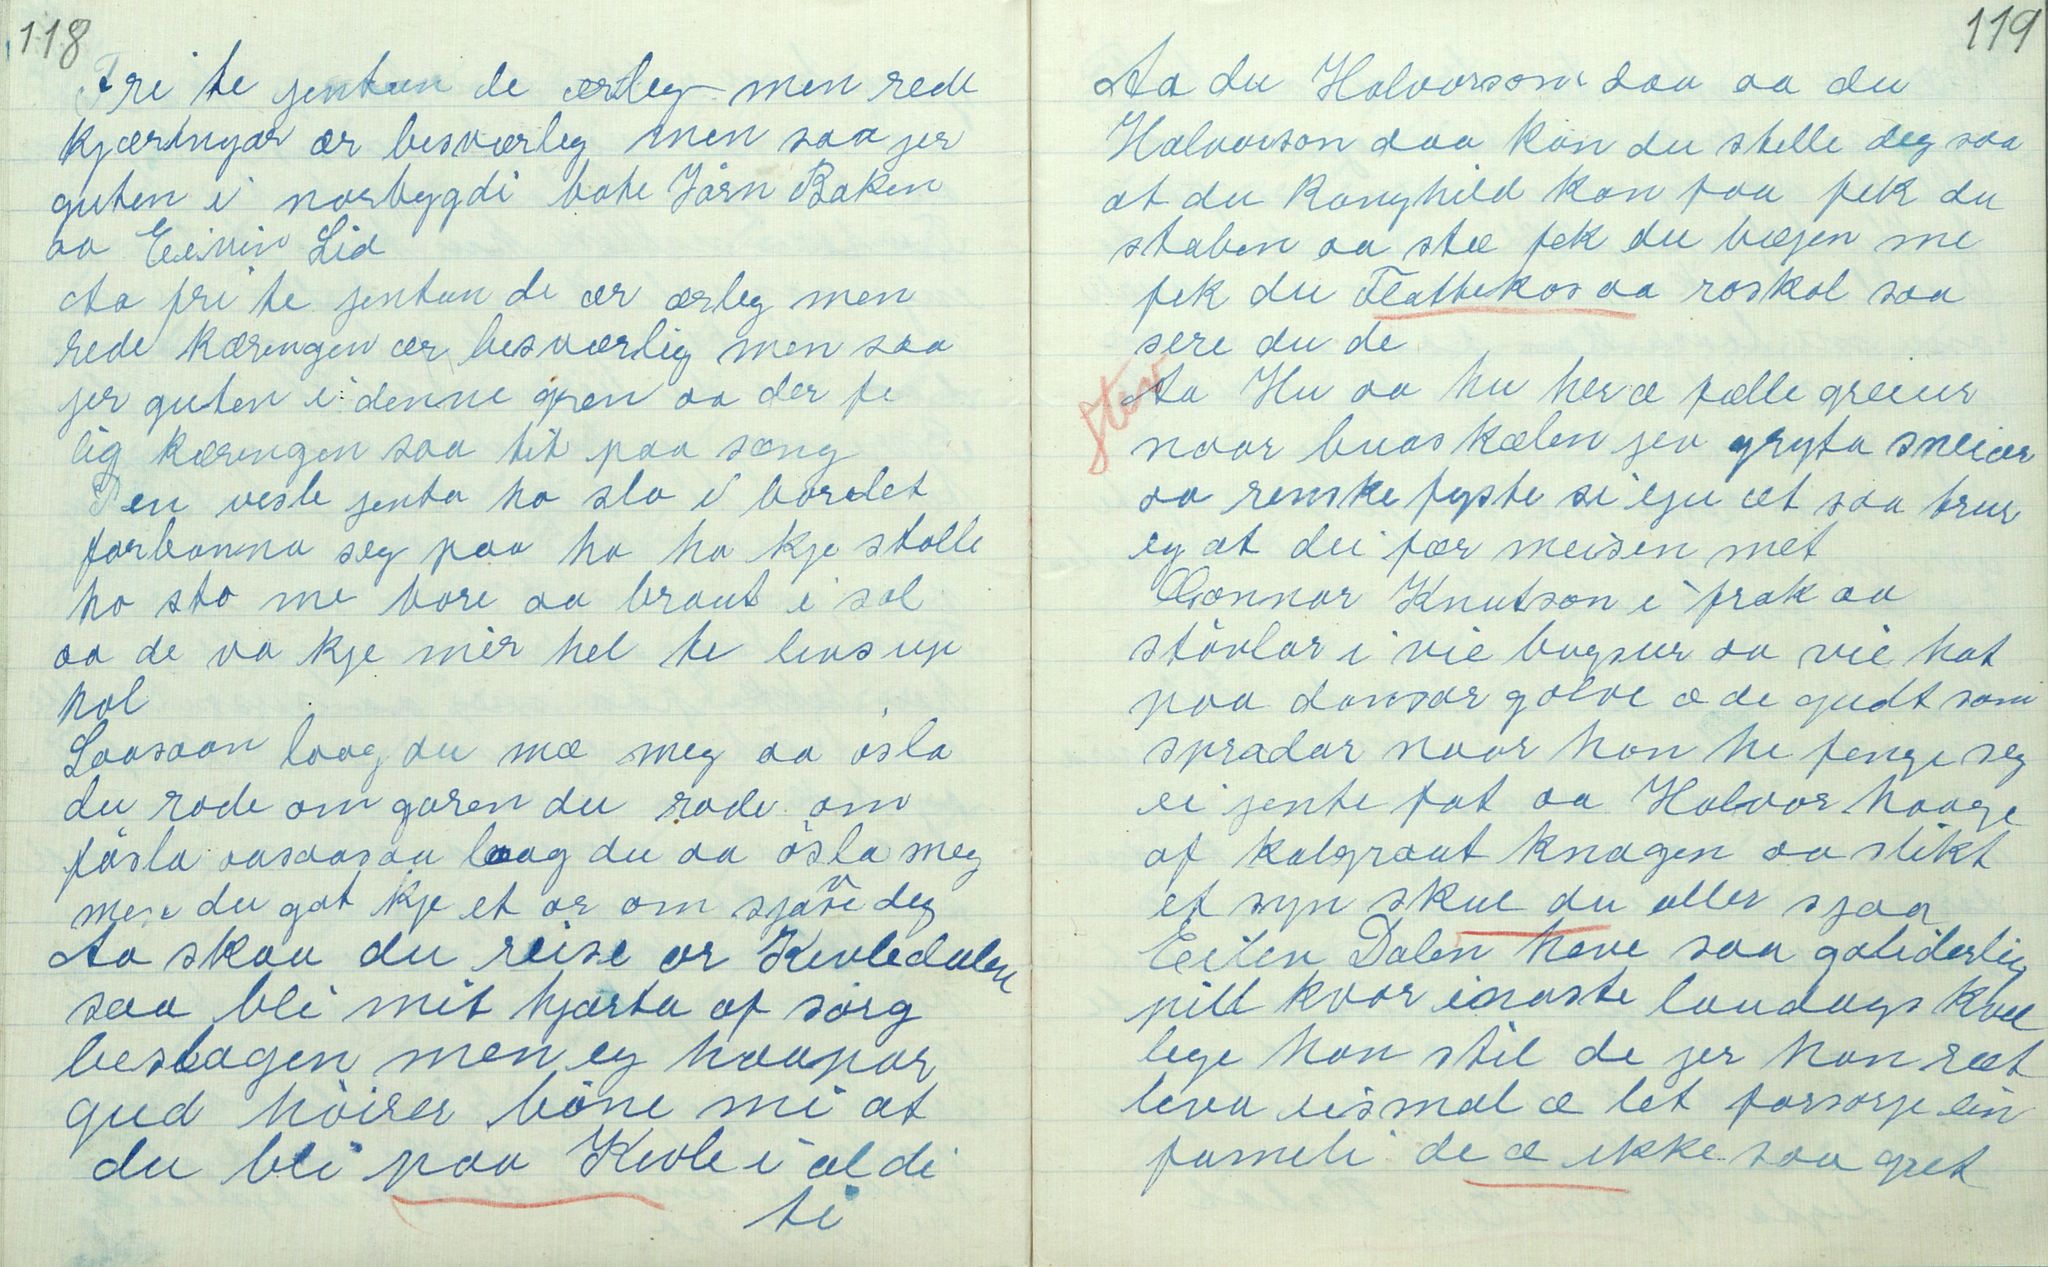 118
Fri te jentun de ærleg men rede
kjæringar ær besværleg men saa jer
guten i norbygdi bate Jörn Baken
aa Eeivin Lid
Aa fri te jentun de ær ærleg men
rede kæringen ær besværlig men saa
jer guten i denne gren aa der fe
lig kæringen saa tit paa sæng
Den vesle jenta ho slo i bordet
forbanna seg paa ho ha kje stolle
ho sto me bore aa braut i sol
aa de va kje mer hel te linsup
hol
Laasaan laag du mæ meg aa ösla
du rade om garen du rade om
fösla aasaasaa laag du aa ösla meg
men du gat kje et or om sjöve deg
Aa skaa du reise or Kivledalen
saa bli mit hjærta af sörg
beslagen men eg haapar
gud höirer böne mi at
du bli paa Kivle i al di
ti
119
Aa du Halvorson saa aa du
Halvorson daa kan du stelle deg saa
at du Ranghild kan faa fek du
staben aa stæ fek du bægen me
fek du Flattekos aa roskal saa
sere du de
Stev
Aa Hu aa hu her æ fælle greiur
naar buaskælen jev gryta sneiær
aa renske fyste si egu æt saa trur
eg at dei fær meisen met
Gonnar Knutson i frak aa
stövlar i vie bugsur aa vie hat
paa dansar golve æ de gudt som
spradar naar han he fenge seg
ei jente fat aa Halvor Haage
af kalgraut knagen aa slikt
et syn skue du aller sjaa
Eeilev Dalen heve saa galiderlig
pill kvar einaste laudags kvel
lege han stil de jer han ræt
leva eismal æ let forsørje ein
fameli de æ ikke saa gret